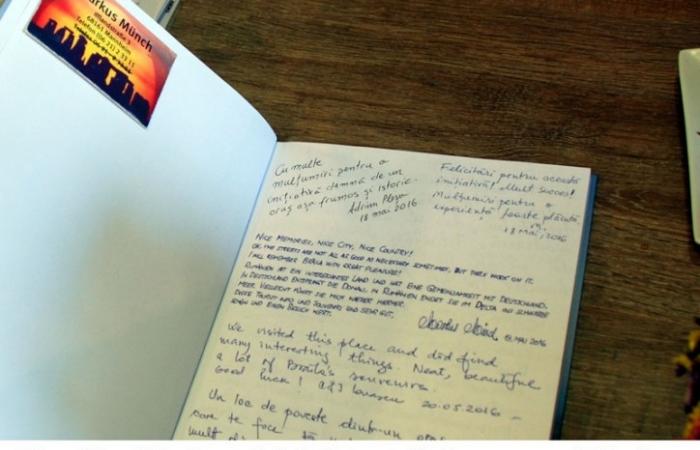 arkus Münch
68161 Mannheim
Cu multe
mulțumiri pentru o
inițiativă demnă de un
oraș așa frumos și istoric.
Adrian
18 mai 2016
Felicitări pentru această
inițiativă! Mult succes!
Mulțumiri pentru o
experiență foarte plăcută
18 Mai, 2016
NICE MEMORIES, NICE CITY, NICE COUNTRY!
OK, THE STREETS ARE NOT ALL AS GOOD AS NECESSARY SOMETIMES, BUT THEY WORK ON IT.
I WILL REMEMBER BRAILA WITH GREAT PLEASURE!
RUMÄNIEN IST EIN INTERESSANTES LAND UND HAT EINE GEMEINSAMKEIT MIT DEUTSCHLAND.
IN DEUTSCHLAND ENTSPRINGT DIE DONAU, IN RUMÄNIEN ENDET SIE IM DELTA AM SCHWARZEN
MEER. VIELLEICHT FÜHRT SIE MICH WIEDER HIERHER.
DIESE TOURIST INFO UND SOUVENIRS SIND SEHR GUT,
SCHÖN UND EINEN BESUCH WERT.
MAI 2016
We visited this place and did find
many interesting things. Neat, beautiful
a lot of Brăila's souvenirs.
Good luck!
20.05.2016
Un loc de poveste dintr-un
care te face să
mult